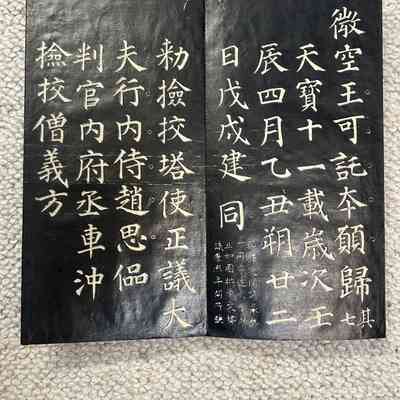 微空王可託夲願歸其七
天寶十一載歲次壬
辰四月乙丑朔廿二
日戊戌建 同
勑撿挍塔使正議大
夫行内侍趙思偘
判官内府丞車沖
撿挍僧義方